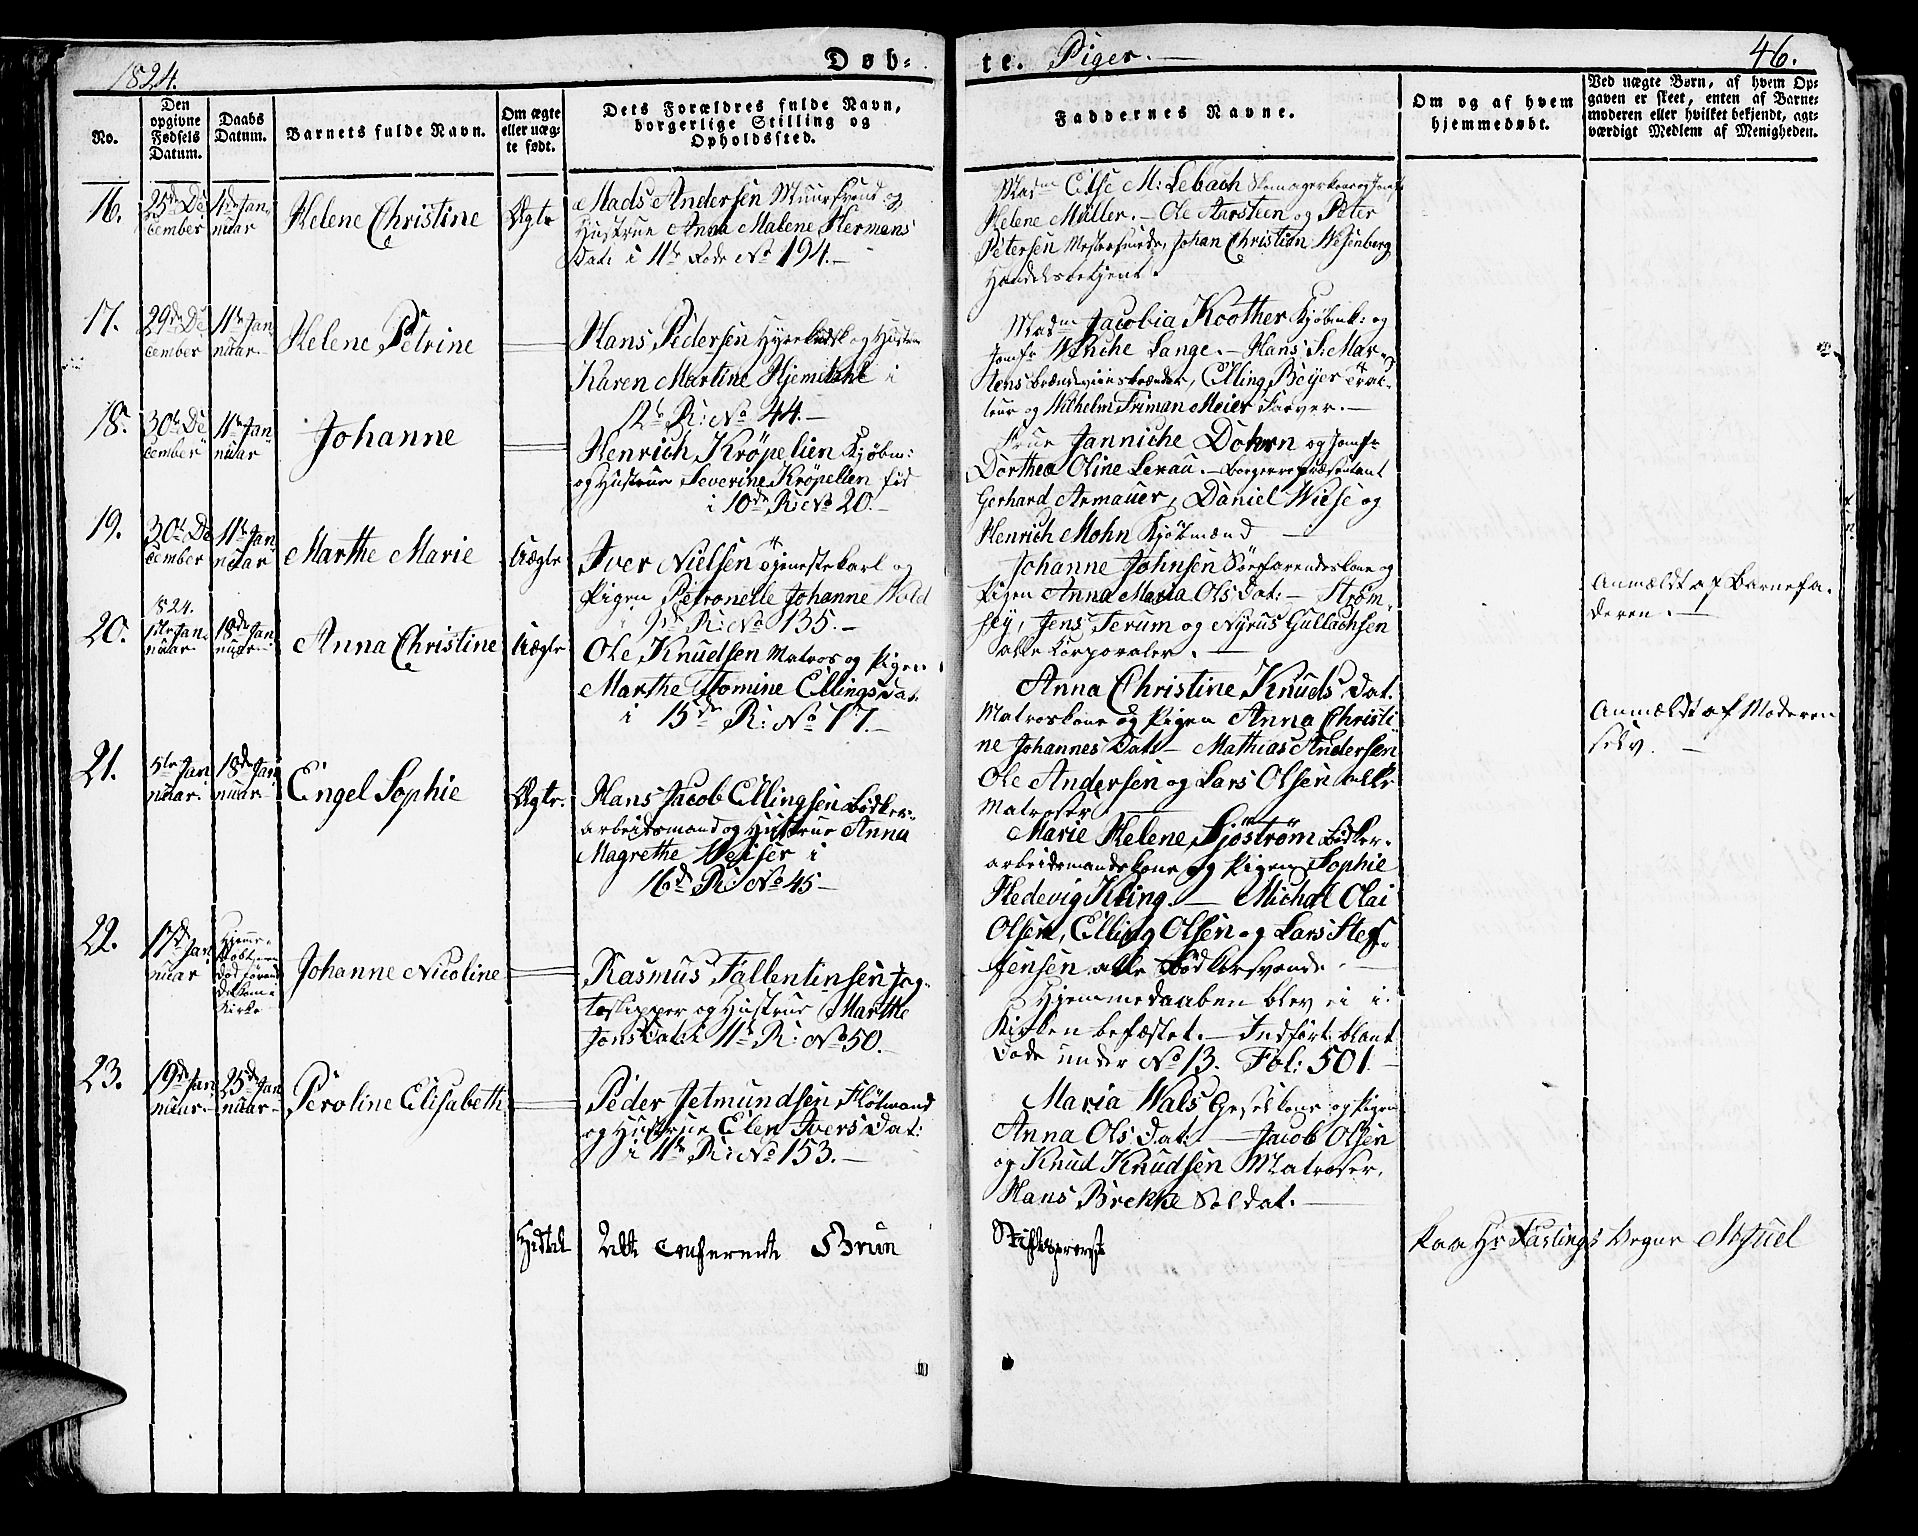 1824.
Døb-
te. Piger.-
46.
No.
Den opgivne Fødsels Datum.
Daabs Datum.
Barnets fulde Navn.
Om ægte eller uægte født.
Dets Forældres fulde Navn, borgerlige Stilling og Opholdssted.
Faddernes Navne.
Om og af hvem hjemmedøbt.
Ved uægte Børn, af hvem Opgaven er skeet, enten af Barnemoderen eller hvilket bekjendt, agtværdigt Medlem af Menigheden.
16.
25de De
cember
4de Jan
nuar
Helene Christine
Ægte
Mads Andersen Muursvend og
Hustrue Anna Malene Hermans
Dat: i 11te Rode No 194.-
Madme Else M: Lebach Skomagerkone og Jomfr
Helene Müller.- Ole Aarsteen og Peter
Petersen Mestersmede, Johan Christian Wesenberg
Handelsbetjent.
17.
29de De
cember
11te Jan
nuar
Helene Petrine
Hans Pedersen Hyrekudsk og Hustrue
Karen Martine Hjemdahl i
12te R: No 44.-
Madme Jacobia Koother Kjøbmk: og
Jomfr Wenche Lange.- Hans S: Mar-
tens Brændeviinsbrænder, Elling Beyer Trac-
teur og Wilhelm Friman Meier Farver.-
18.
30te De
cember
11te Jan
nuar
Johanne
Henrich Krøpelien Kjøbm:
og Hustrue Severine Krøpelien fød
i 10de R: No 20.-
Frue Janniche Dohrn og Jomfr
Dorthea Oline Lexau.- Borgerrepræsentant
Gerhard Armauer, Daniel Wiese og
Henrich Mohn Kjøbmænd
19.
30te De
cember
11te Jan
nuar
Marthe Marie
Uægte
Iver Nielsen Tjenestekarl og
Pigen Petronelle Johanne Hold
i 9de R: No 135.-
Johanne Johnsen Søefarendeskone og
Pigen Anna Maria Ols Dat:- Strøm-
søy, Jens Terum og Nyrus Gullachsen
alle Corporaler.
Anmældt af Barnefa-
deren.-
20.
1824.
1ste Jan
nuar
18de Jan
nuar
Anna Christine
Uægte
Ole Knudsen Matros og Pigen
Marthe Tomine Ellings Dat:
i 15de R: No 17.-
Anna Christine Knuds Dat:
Matroskone og Pigen Anna Christi
ne Johannes Dat:- Mathias Andersen
Ole Andersen og Lars Olsen alle
Matroser
Anmældt af Moderen
selv.-
21.
5te Jan
nuar
18de Jan
nuar
Engel Sophie
Ægte.
Hans Jacob Ellingsen Bødker-
arbeidsmand og Hustrue Anna
Magrethe Weiser i
16de R: No 45-
Marie Helene Sjøstrøm Bødker-
arbeidsmandskone og Pigen Sophie
Hedevig Kling.- Michal Olai
Olsen, Elling Olsen og Lars Stef-
fensen alle Bødkersvende.
22.
17de Jan
nuar
Hjemme-
døbt men
død førend
det kom i
Kirke
Johanne Nicoline
Rasmus Fallentinsen Jæg-
teskipper og Hustrue Marthe
Jons Dat: i 11te R: No 50.-
Hjemmedaaben blev ei i
Kirken befæstet.- Indført blant
Døde under No 13. Fol: 501.
23.
19de Jan
nuar-
25de Jan
nuar-
Peroline Elisabeth
Peder Jetmundsen Fløtmand
og Hustrue Elen Ivers Dat:
i 11te R: No 153.-
Maria Wals Geselkone og Pigen
Anna Ols Dat:- Jacob Olsen
og Knud Knudsen Matroser,
Hans Brekke Soldat.
Hidtil rett confererede Brun
Stiftsprovst
Paa Hr Kastings Vegne